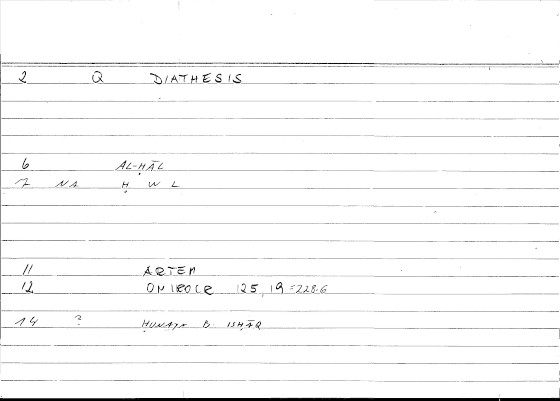 2 Q DIATHESIS
6 AL-ḤĀL
7 NA Ḥ W L
11 ARTEM
12 ONIROCR 125, 19 = 228.6
14 ? ḤUNAYN B ISḤĀQ